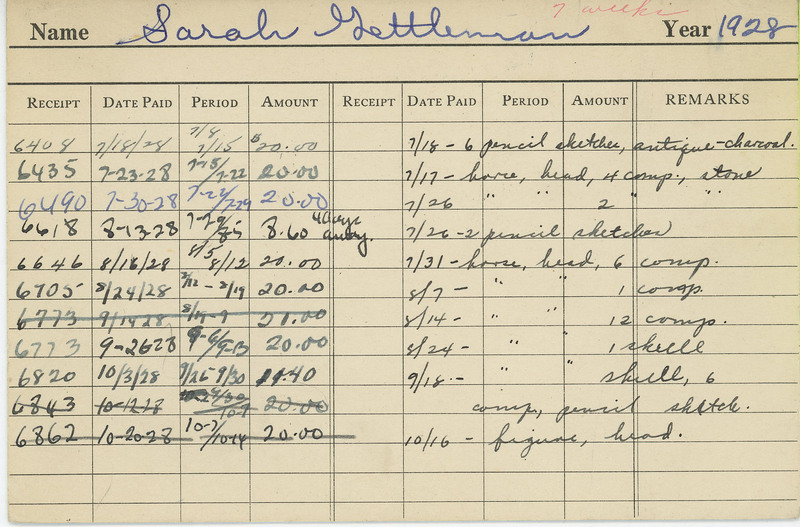 7 weeks
Name Sarah Gettleman Year 1928
RECEIPT DATE PAID PERIOD AMOUNT RECEIPT DATE PAID PERIOD AMOUNT REMARKS
6408 7/18/28 7/8 7/15 $20.00 7/18 - 6 pencil sketches, antique-charcoal.
6435 7-23-28 7-15/7-22 20.00 7/17 - horse, head, 4 comp., stone
6490 7-30-28 7-22/7-29 20.00 7/26 " " 2 " "
6618 8-13-28 7-29/8-5 8.60 4 days away. 7/26 - 2 pencil sketches
6646 8/18/28 8/5 8/12 20.00 7/31 - horse, head, 6 comp.
6705 8/24/28 8/12 - 8/19 20.00 8/7 - " " 1 comp.
6773 9/14 28 20.00 8/14 - " " 12 comp.
6773 9-26-28 9-6/9-13 20.00 8/24 - " " 1 skull
6820 10/3/28 9/26-9/30 11.40 9/18 - " skull, 6
6843 10-12-28 20.00 comp, pencil sketch.
6862 10-20-28 10-7/10-14 20.00 10/16 - figure, head.